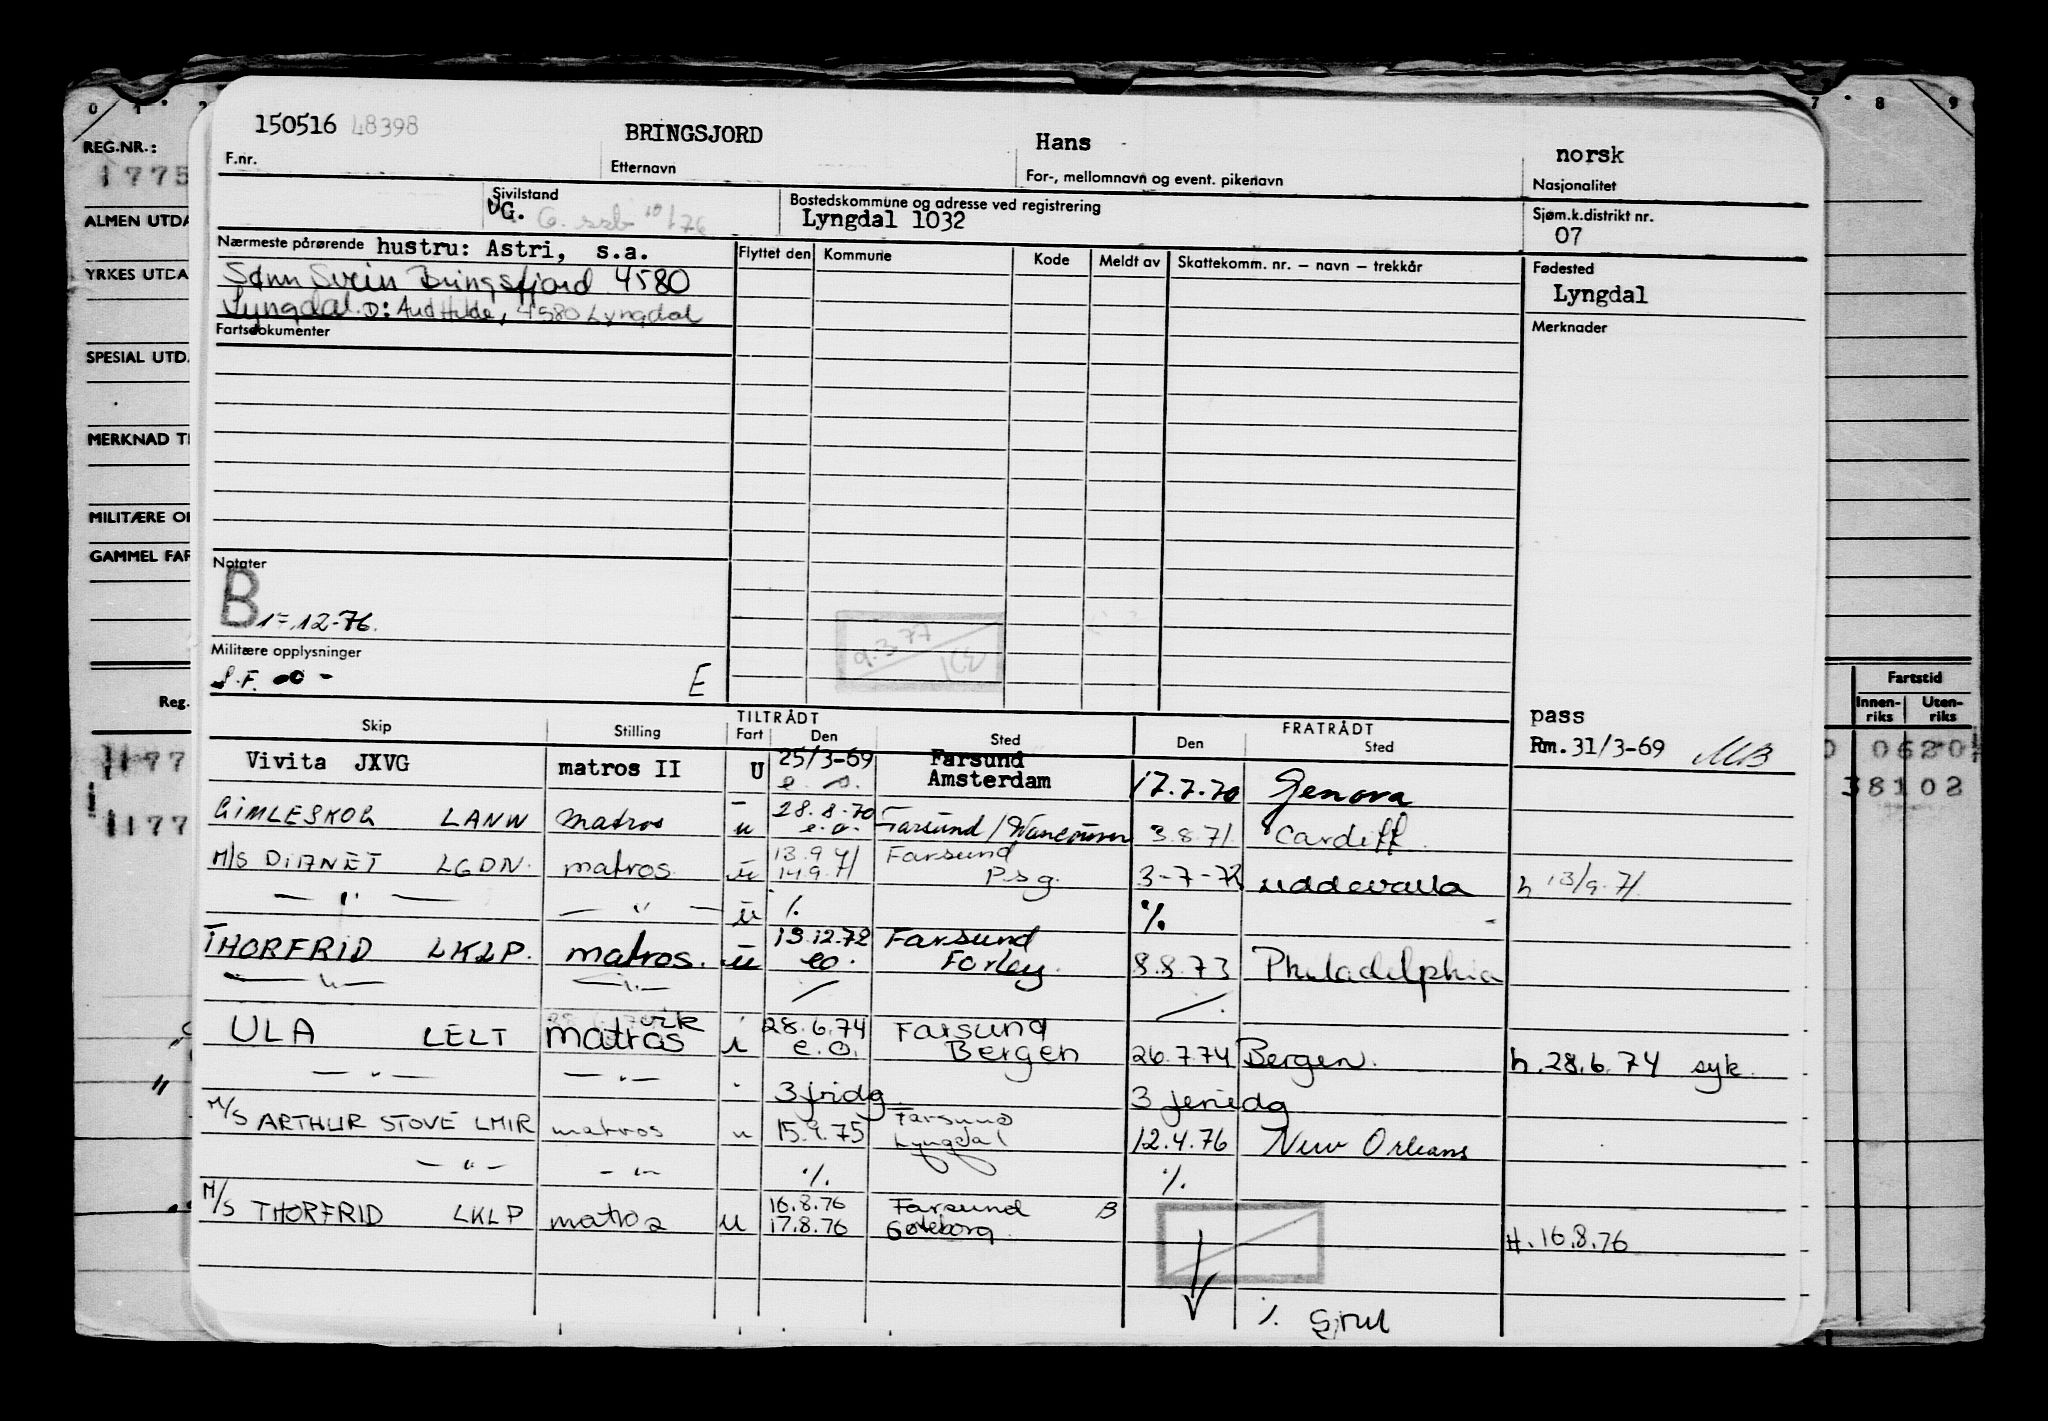 0 1 2 7 8 9
REG.NR.:
1775
ALMEN UTDA
YRKES UTDA
SPESIAL UTD.
MERKNAD TI
MILITÆRE OP
GAMMEL FAR
Reg.
150516 48398 BRINGSJORD Hans norsk
F.nr. Etternavn For-, mellomnavn og event. pikenavn Nasjonalitet
Sivilstand Bostedskommune og adresse ved registrering Sjøm.k.distrikt nr.
G. G. ssb 10/76 Lyngdal 1032 07
Nærmeste pårørende hustru: Astri, s.a. Flyttet den Kommune Kode Meldt av Skattekomm. nr. – navn – trekkår Fødested
Sønn Svein Bringsfjord 4580 Lyngdal
Lyngdal. D: Aud Hilde, 4580 Lyngdal
Fartsdokumenter Merknader
Notater
B 17.12-76.
9.3.77
Militære opplysninger
S.F. E
Skip Stilling TILTRÅDT Fart Den Sted FRATRÅDT Den Sted
pass
Rm. 31/3-69 MB
Vivita JXVG matros II U 25/3-69 Farsund
e.o. Amsterdam 17.7.70 Genova
GIMLESKOG LANW matros u 28.8.70 e.o. Farsund/Vancouver 3.8.71. Cardiff.
M/S DIANET LGDN. matros u 13.9.71 Farsund
14.9.71 Psg. 3-7-72 Uddevalla h 13/9.71.
— " — — " — u ·/. ·/.
THORFRID LKLP. matros. u 13.12.72 Farsund
eo. Forley. 8.8.73 Philadelphia
— " — — " — / /
ULA LELT matros 28.6.74 Farsund
e.o. Bergen 26.7.74 Bergen. h. 28.6.74 syk.
— " — — " — 3 fridg. 3 feriedg
M/S ARTHUR STOVE LMIR matros u 15.9.75 Farsund
Lyngdal 12.4.76 New Orleans
— " — — " — ·/. ·/.
M/S THORFRID LKLP matros u 16.8.76 Farsund B
17.8.76 Gøteborg. H. 16.8.76
·/.
Fartstid
Innen-
riks
Uten-
riks
0620
38102
177
177